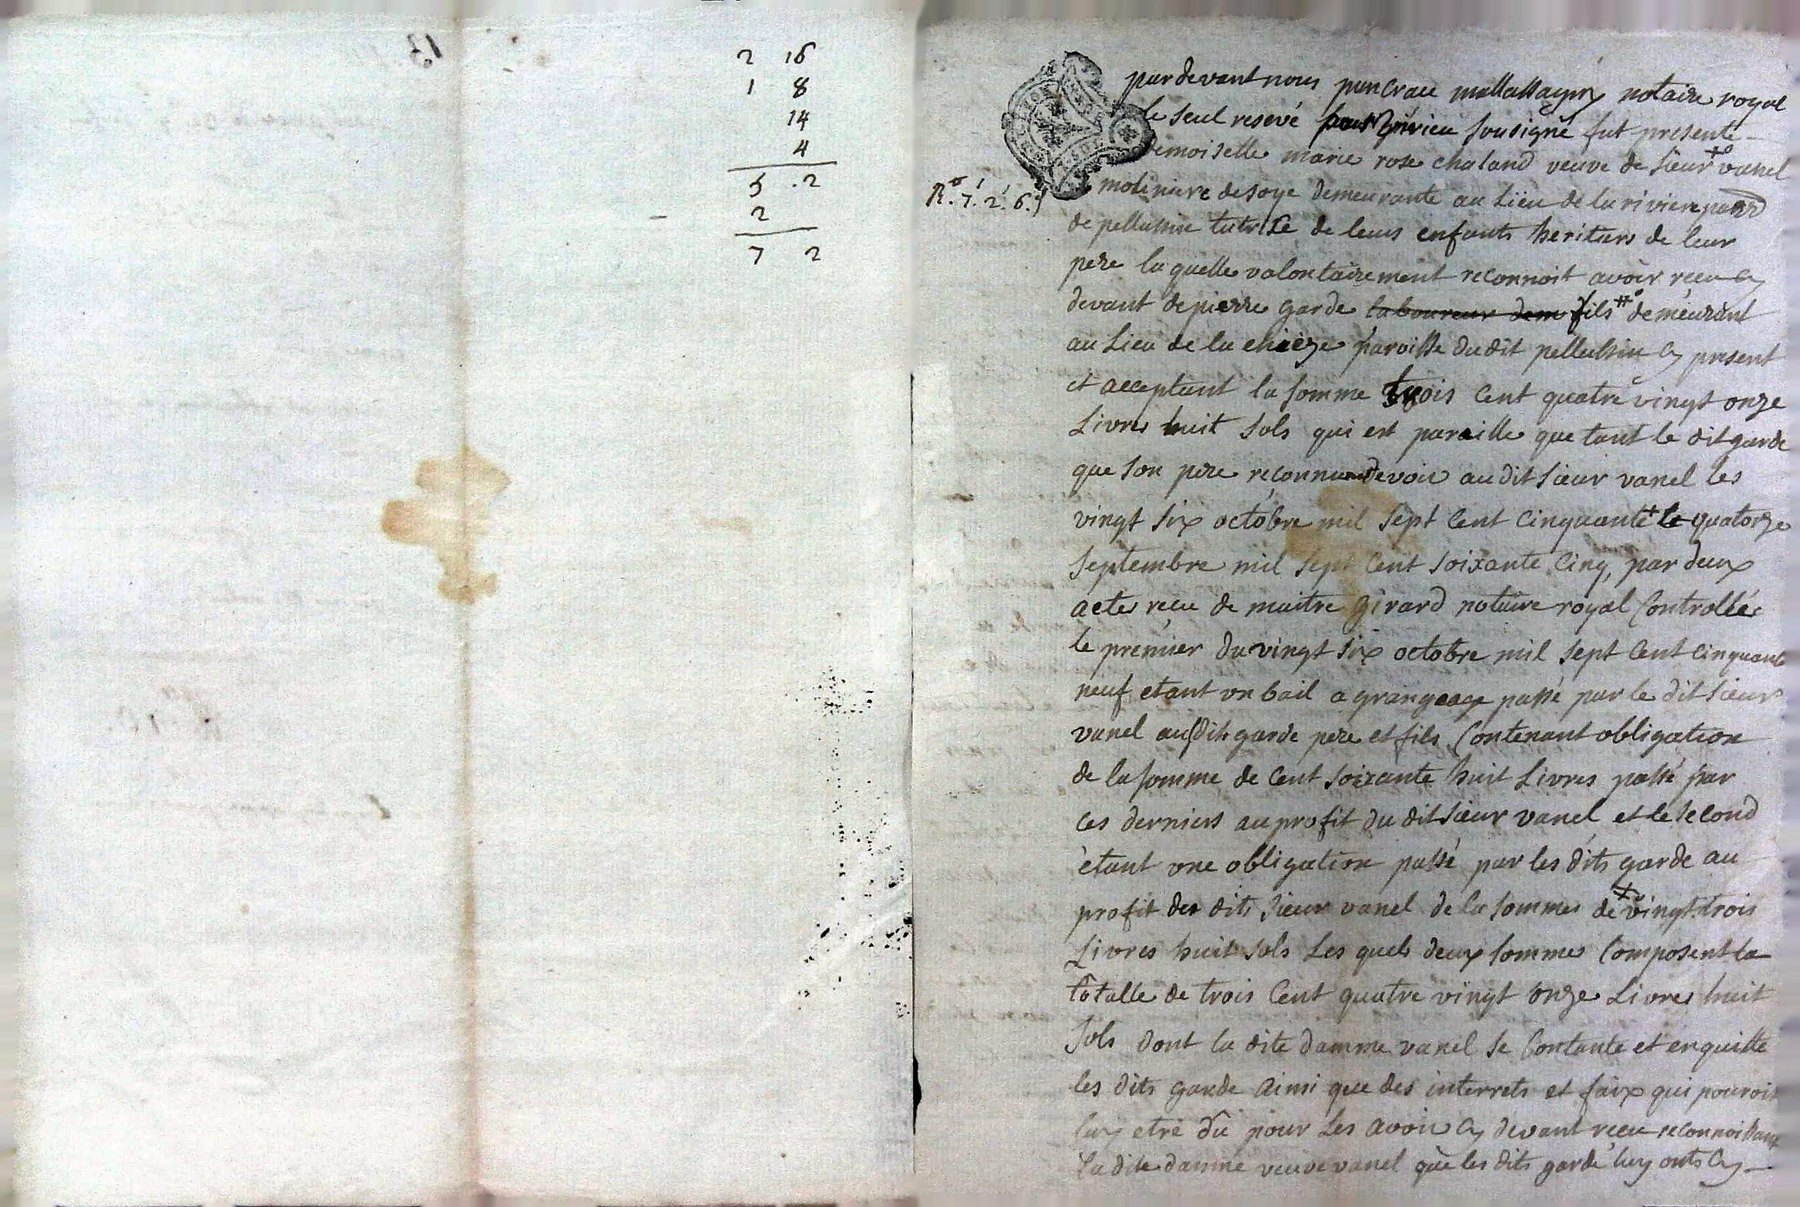 2 16
1 8
14
4
5 . 2
2
7 2
R. 7. 2. 6.
pardevant nous pancrace notaire royal
le seul resevé sousigné fut presente
demoiselle marie rose chaland veuve de sieur vanel
molinière de soye demeurante au Lieu de la riviere
de pellussin tutrise de leurs enfants heritiers de leur
pere laquelle volontairement reconnoit avoir reçu cy
devant de pierre garde laboureur dem fils demeurant
au Lieu de la chièze paroisse du dit pellussin cy present
et acceptant la somme trois cent quatre vingt onze
Livres huit sols qui est pareille que tant le dit garde
que son pere reconnurent devoir au dit sieur vanel les
vingt six octobre mil sept cent cinquante le quatorze
septembre mil sept cent soixante cinq, par deux
actes reçu de maitre girard notaire royal controllés
le premier du vingt six octobre mil sept cent cinquante
neuf etant un bail a grangeage passé par le dit sieur
vanel ausdits garde pere et fils, contenant obligation
de la somme de cent soixante huit Livres passé par
ces derniers au profit du dit sieur vanel et le second
ètant une obligation passé par les dits garde au
profit des dits sieur vanel de la sommes de vingt trois
Livres huit sols Les quels deux somme composent la
totalle de trois cent quatre vingt onze Livres huit
sols dont la dite damme vanel se contante et en quitte
les dits garde ainsi que des interrets et faix qui pouroit
luy etre dû pour Les avoir cy devant reçu reconnoissant
la dite damme veuve vanel que les dits garde luy onts cy